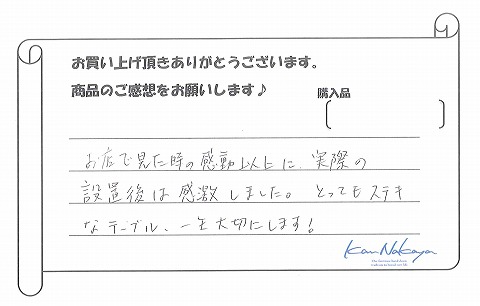 お買い上げ頂きありがとうございます。
商品のご感想をお願いします♪
購入品
お店で見た時の感動以上に、実際の
設置後は感激しました。とってもステキ
なテーブル、一生大切にします!
Kan Nakaya